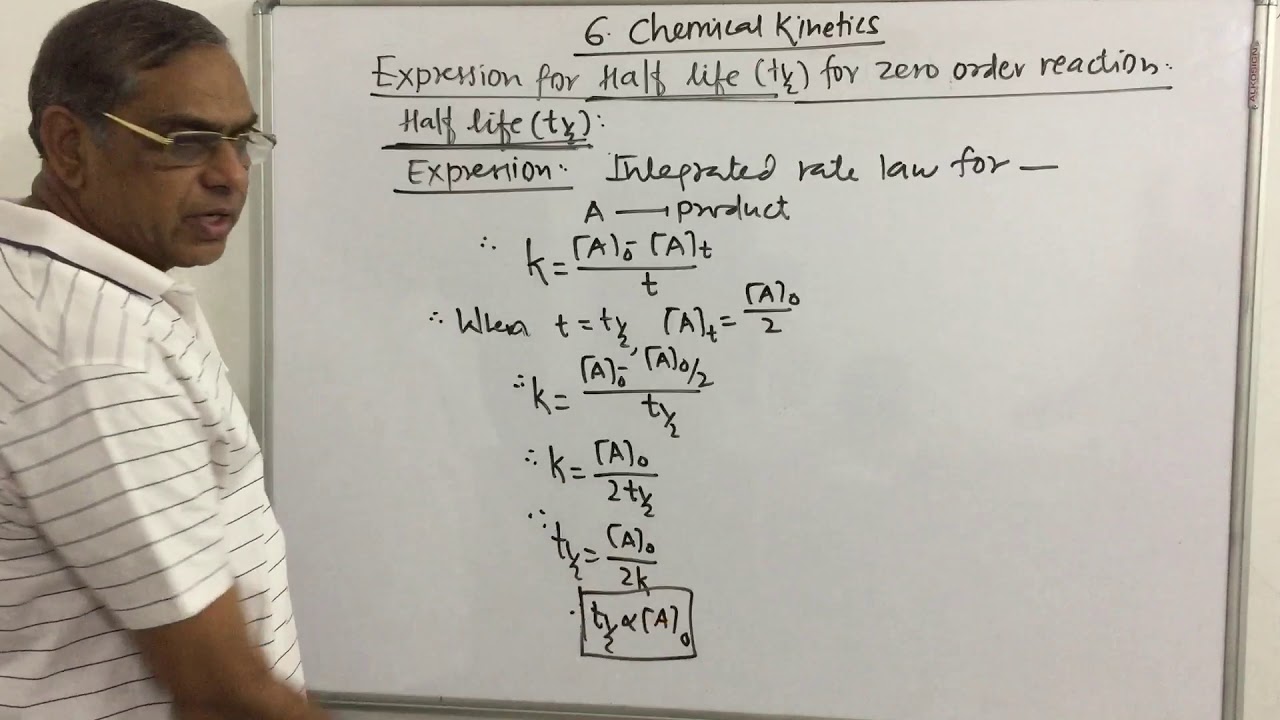 6. Chemical Kinetics
Expression for Half life (t½) for zero order reaction.
Half life (t½):
Expression: Integrated rate law for —
A → product
∴ k = [A]₀ - [A]t / t
∴ When t = t½, [A]t = [A]₀ / 2
∴ k = [A]₀ - [A]₀/2 / t½
∴ k = [A]₀ / 2t½
∴ t½ = [A]₀ / 2k
∴ t½ ∝ [A]₀
ALKOSIGN